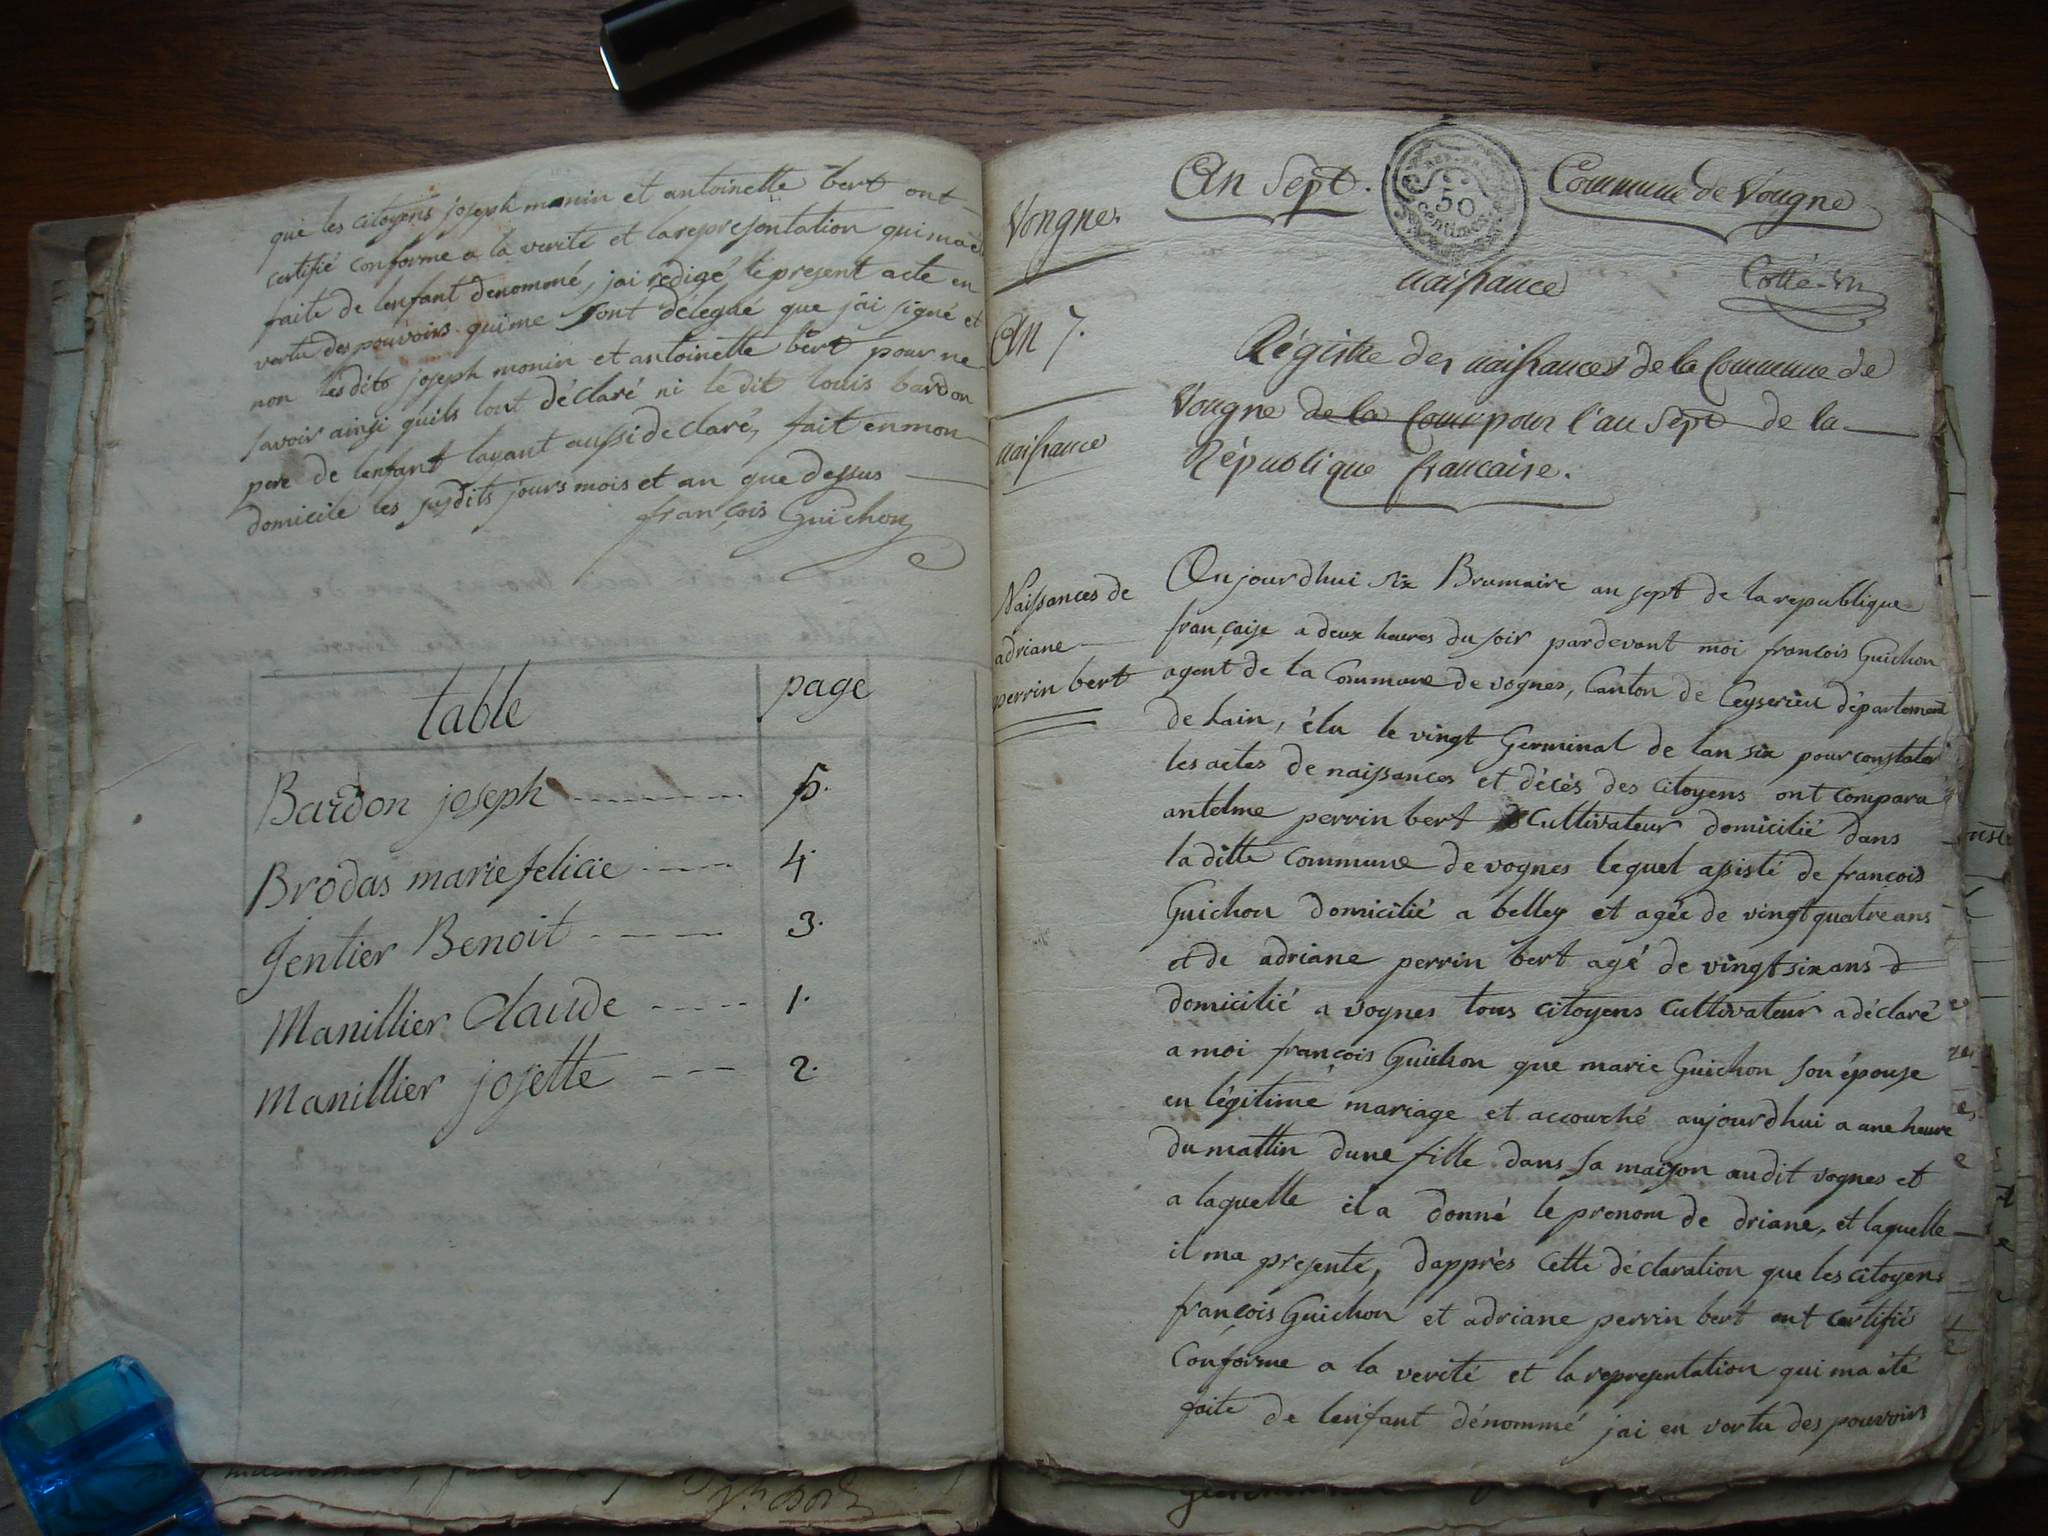 que les citoyens joseph monin et antoinette bert ont
certifié conforme a la verité et la representation qui ma été
faite de lenfant denommé, jai redigé le present acte en
vertu des pouvoirs qui me sont délegué que j'ai signé et
non lesdits joseph monin et antoinette bert pour ne
savoir ainsi quils lont déclaré ni le dit louis bardon
pere de lenfant layant aussi declaré, fait en mon
domicile les susdits jours mois et an que dessus
françois Guichon
table page
Bardon joseph 5.
Brodas marie felicie 4.
Jentier Benoit 3.
Manillier Claude 1.
Manillier josette 2.
Vongne.
An 7.
naissance
An Sept.
50
centimes
Commune de Vougne
naissance
Régistre des naissances de la Commune de
Vougne de la Com pour l'an Sept de la
République francaise.
Naissances de
adriane
perrin bert
Aujourdhui six Brumaire an sept de la republique
française a deux heures du soir pardevant moi françois Guichon
agent de la Commune de vognes, Canton de Ceyserieu département
de lain, élu le vingt Germinal de lan six pour constater
les actes de naissances et décès des citoyens ont compara
antelme perrin bert Cultivateur domicilié dans
la ditte commune de vognes lequel assisté de françois
Guichon domicilié a belley et agée de vingt quatre ans
et de adriane perrin bert agé de vingt six ans
domicilié a vognes tous citoyens cultivateur a déclaré
a moi françois Guichon que marie Guichon son épouse
en légitime mariage et accouché aujourdhui a une heure
du mattin dune fille dans sa maison audit vognes et
a laquelle il a donné le pronom de driane, et laquelle
il ma presenté, dapprès cette déclaration que les citoyens
françois Guichon et adriane perrin bert ont certifié
Conforme a la verité et la representation qui ma été
faite de lenfant dénommé jai en vertu des pouvoirs